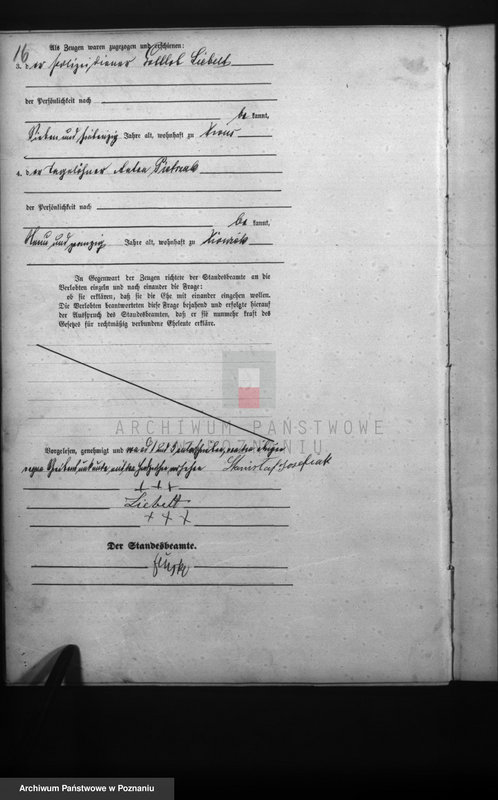 16
Als Zeugen waren zugezogen und erschienen:
3. der Polizeidiener Gottlob Liebelt
der Persönlichkeit nach
be kannt,
Sieben und siebenzig Jahre alt, wohnhaft zu Xions
4. der Tagelöhner Anton
der Persönlichkeit nach
be kannt,
Neun und zwanzig Jahre alt, wohnhaft zu
In Gegenwart der Zeugen richtete der Standesbeamte an die
Verlobten einzeln und nach einander die Frage:
ob sie erklären, daß sie die Ehe mit einander eingehen wollen.
Die Verlobten beantworteten diese Frage bejahend und erfolgte hierauf
der Ausspruch des Standesbeamten, daß er sie nunmehr kraft des
Gesetzes für rechtmäßig verbundene Eheleute erkläre.
ARCHIWUM PAŃSTWOWE
W POZNANIU
Vorgelesen, genehmigt und
Stanislaf Josefiak
+ + +
Liebelt
+ + +
Der Standesbeamte.
Archiwum Państwowe w Poznaniu